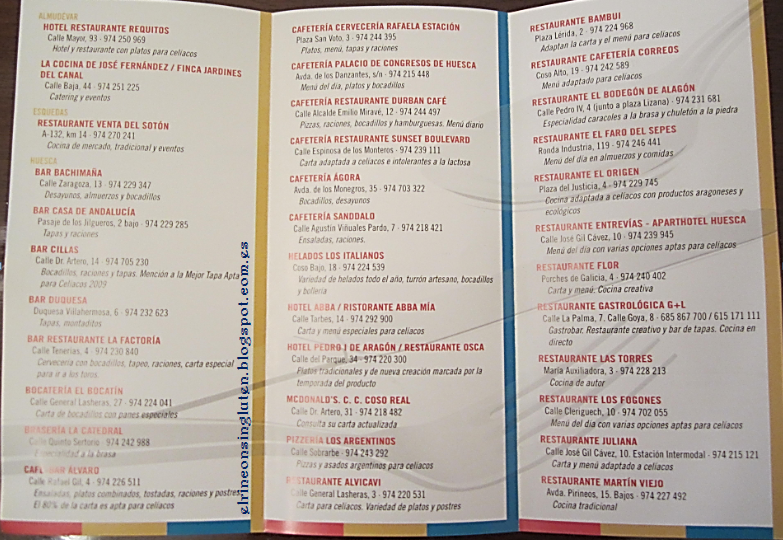 ALMUDÉVAR
HOTEL RESTAURANTE REQUITOS
Calle Mayor, 93 · 974 250 969
Hotel y restaurante con platos para celíacos
LA COCINA DE JOSÉ FERNÁNDEZ / FINCA JARDINES
DEL CANAL
Calle Baja, 44 · 974 251 225
Catering y eventos
ESQUEDAS
RESTAURANTE VENTA DEL SOTÓN
A-132, km 14 · 974 270 241
Cocina de mercado, tradicional y eventos
HUESCA
BAR BACHIMAÑA
Calle Zaragoza, 13 · 974 229 347
Desayunos, almuerzos y bocadillos
BAR CASA DE ANDALUCÍA
Pasaje de los Jilgueros, 2 bajo · 974 229 285
Tapas y raciones
BAR CILLAS
Calle Dr. Artero, 14 · 974 705 230
Bocadillos, raciones y tapas. Mención a la Mejor Tapa Apta
para Celíacos 2009
BAR DUQUESA
Duquesa Villahermosa, 6 · 974 232 623
Tapas, montaditos
BAR RESTAURANTE LA FACTORÍA
Calle Tenerías, 4 · 974 230 840
Cervecería con bocadillos, tapeo, raciones, carta especial
para ir a los toros.
BOCATERÍA EL BOCATÍN
Calle General Lasheras, 27 · 974 224 041
Carta de bocadillos con panes especiales
BRASERÍA LA CATEDRAL
Calle Quinto Sertorio · 974 242 988
Especialidad a la brasa
CAFÉ-BAR ÁLVARO
Calle Rafael Gil, 4 · 974 226 511
Ensaladas, platos combinados, tostadas, raciones y postres
El 80% de la carta es apta para celíacos
elrinconsingluten.blogspot.com.es
CAFETERÍA CERVECERÍA RAFAELA ESTACIÓN
Plaza San Voto, 3 · 974 244 395
Platos, menú, tapas y raciones
CAFETERÍA PALACIO DE CONGRESOS DE HUESCA
Avda. de los Danzantes, s/n · 974 215 448
Menú del día, platos y bocadillos
CAFETERÍA RESTAURANTE DURBAN CAFÉ
Calle Alcalde Emilio Miravé, 12 · 974 244 497
Pizzas, raciones, bocadillos y hamburguesas. Menú diario
CAFETERÍA RESTAURANTE SUNSET BOULEVARD
Calle Espinosa de los Monteros · 974 239 111
Carta adaptada a celíacos e intolerantes a la lactosa
CAFETERÍA ÁGORA
Avda. de los Monegros, 35 · 974 703 322
Bocadillos, desayunos
CAFETERÍA SANDDALO
Calle Agustín Viñuales Pardo, 7 · 974 218 421
Ensaladas, raciones.
HELADOS LOS ITALIANOS
Coso Bajo, 18 · 974 224 539
Variedad de helados todo el año, turrón artesano, bocadillos
y bollería
HOTEL ABBA / RISTORANTE ABBA MÍA
Calle Tarbes, 14 · 974 292 900
Carta y menú especiales para celíacos
HOTEL PEDRO I DE ARAGÓN / RESTAURANTE OSCA
Calle del Parque, 34 · 974 220 300
Platos tradicionales y de nueva creación marcada por la
temporada del producto
MCDONALD'S. C. C. COSO REAL
Calle Dr. Artero, 31 · 974 218 482
Consulta su carta actualizada
PIZZERÍA LOS ARGENTINOS
Calle Sobrarbe · 974 243 292
Pizzas y asados argentinos para celíacos
RESTAURANTE ALVICAVI
Calle General Lasheras, 3 · 974 220 531
Carta para celíacos. Variedad de platos y postres
RESTAURANTE BAMBUI
Plaza Lérida, 2 · 974 224 968
Adaptan la carta y el menú para celíacos
RESTAURANTE CAFETERÍA CORREOS
Coso Alto, 19 · 974 242 589
Menú adaptado para celíacos
RESTAURANTE EL BODEGÓN DE ALAGÓN
Calle Pedro IV, 4 (junto a plaza Lizana) · 974 231 681
Especialidad caracoles a la brasa y chuletón a la piedra
RESTAURANTE EL FARO DEL SEPES
Ronda Industria, 119 · 974 246 441
Menú del día en almuerzos y comidas
RESTAURANTE EL ORIGEN
Plaza del Justicia, 4 · 974 229 745
Cocina adaptada a celíacos con productos aragoneses y
ecológicos
RESTAURANTE ENTREVÍAS - APARTHOTEL HUESCA
Calle José Gil Cávez, 10 · 974 239 945
Menú del día con varias opciones aptas para celíacos
RESTAURANTE FLOR
Porches de Galicia, 4 · 974 240 402
Carta y menú. Cocina creativa
RESTAURANTE GASTROLÓGICA G+L
Calle La Palma, 7. Calle Goya, 8 · 685 867 700 / 615 171 111
Gastrobar. Restaurante creativo y bar de tapas. Cocina en
directo
RESTAURANTE LAS TORRES
María Auxiliadora, 3 · 974 228 213
Cocina de autor
RESTAURANTE LOS FOGONES
Calle Cleriguech, 10 · 974 702 055
Menú del día con varias opciones aptas para celíacos
RESTAURANTE JULIANA
Calle José Gil Cávez, 10. Estación Intermodal · 974 215 121
Carta y menú adaptado a celíacos
RESTAURANTE MARTÍN VIEJO
Avda. Pirineos, 15. Bajos · 974 227 492
Cocina tradicional